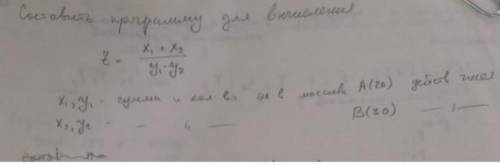 Составить программу для вычисления
Z = (x₁ + x₂) / (y₁ · y₂)
x₁, y₁ – суммы и кол-во в массиве A(20) действ чисел
x₂, y₂ — " — B(30) — " —